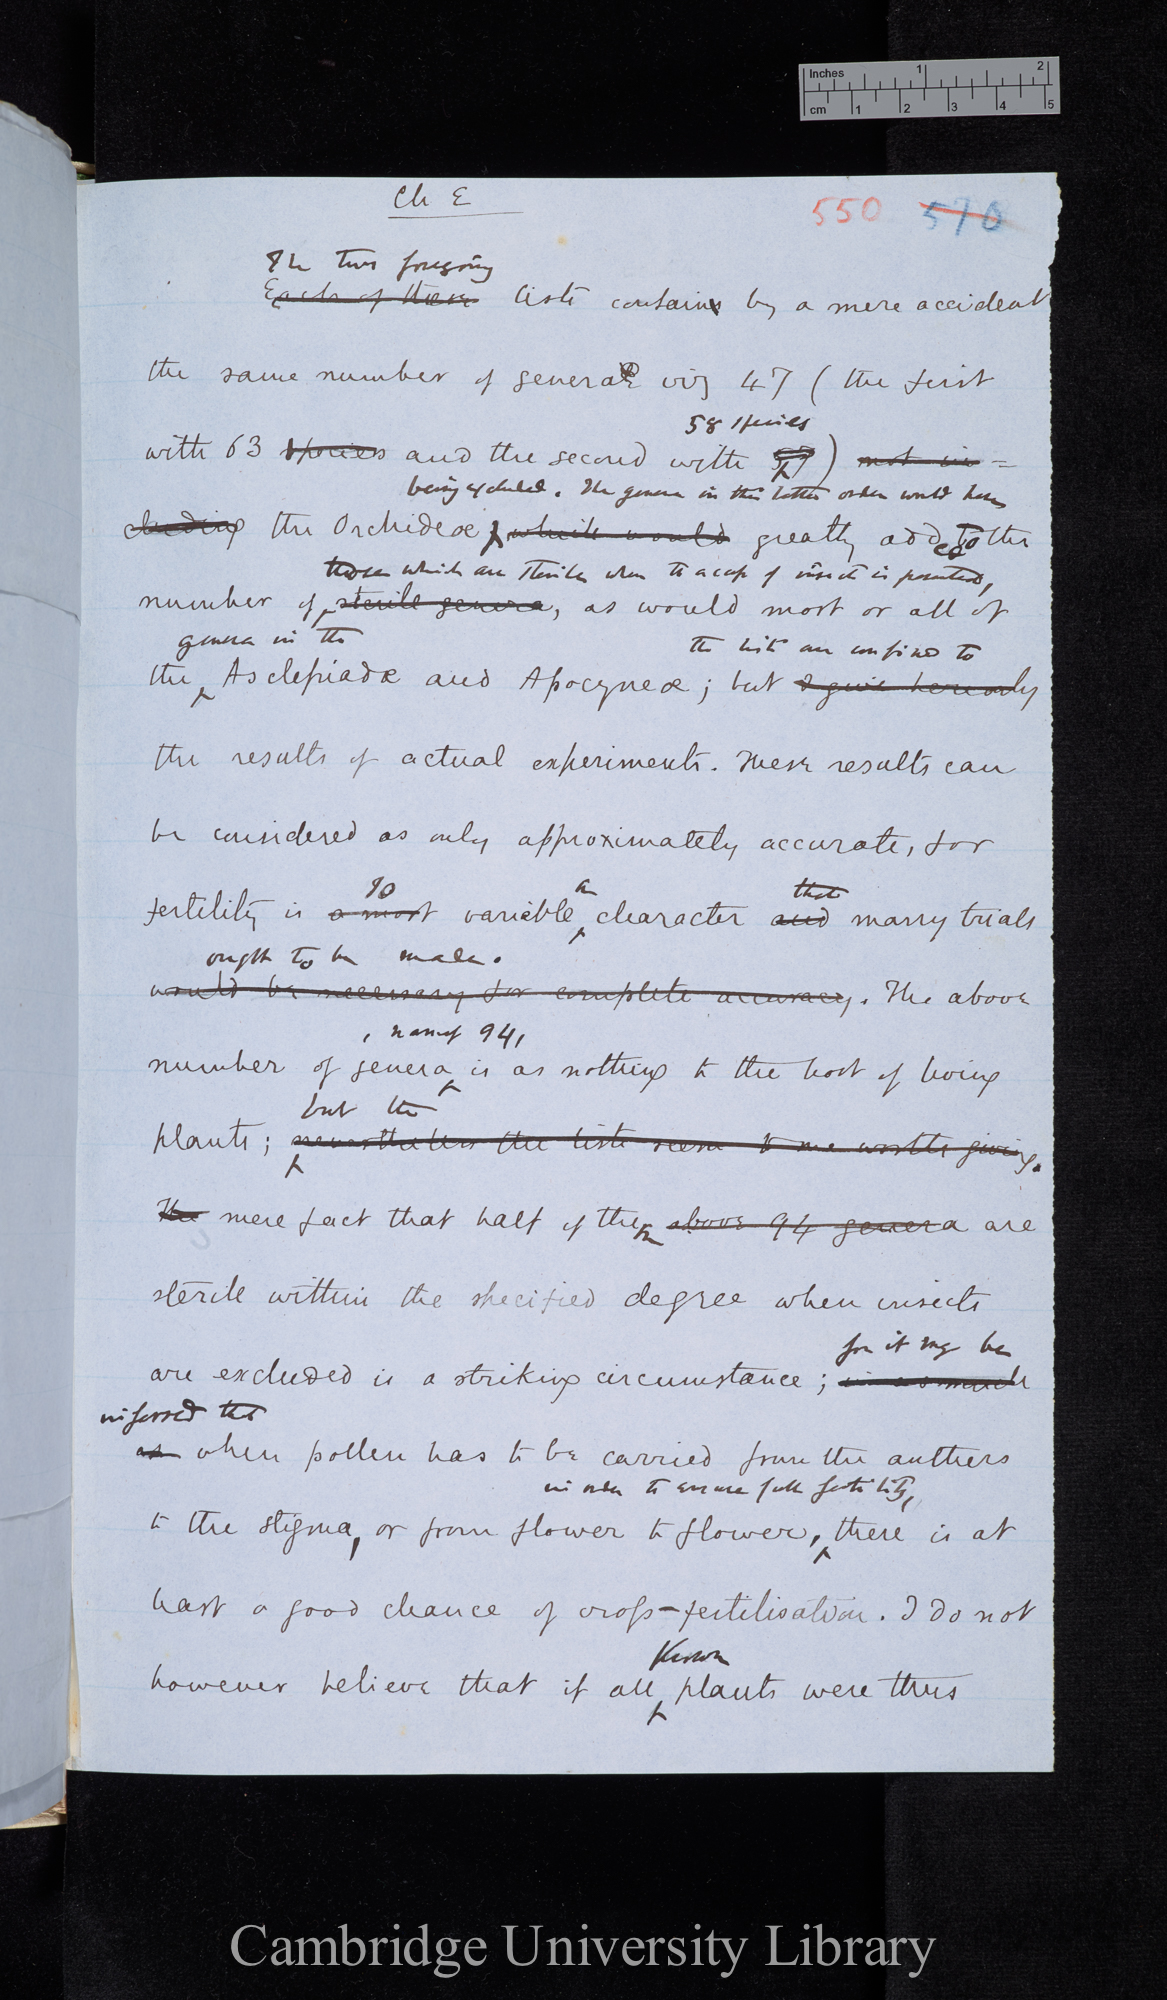 Inches 1 2
cm 1 2 3 4 5
Ch E
550 570
The two foregoing
Each of these lists contains by a mere accident
the same number of genera viz 47 (the first
58 species
with 63 species and the second with 57) not in=
being excluded. The genera in this latter order would have
cluding the Orchideæ, which would greatly added to the
those which are sterile when the access of insects is prevented,
number of sterile genera, as would most or all of
genera in the
the lists are confined to
the Asclepiadæ and Apocyneæ; but I give here only
the results of actual experiments. These results can
be considered as only approximately accurate, for
so a that
fertility is a most variable character and many trials
ought to be made.
would be necessary for complete accuracy. The above
, namely 94,
number of genera is as nothing to the host of living
but the
plants; nevertheless the lists seem to me worth giving.
The mere fact that half of the above 94 genera are
sterile within the specified degree when insects
for it may be
are excluded is a striking circumstance; in as much
inferred that
as when pollen has to be carried from the anthers
in order to ensure full fertility,
to the stigma, or from flower to flower, there is at
least a good chance of cross-fertilisation. I do not
known
however believe that if all plants were thus
Cambridge University Library